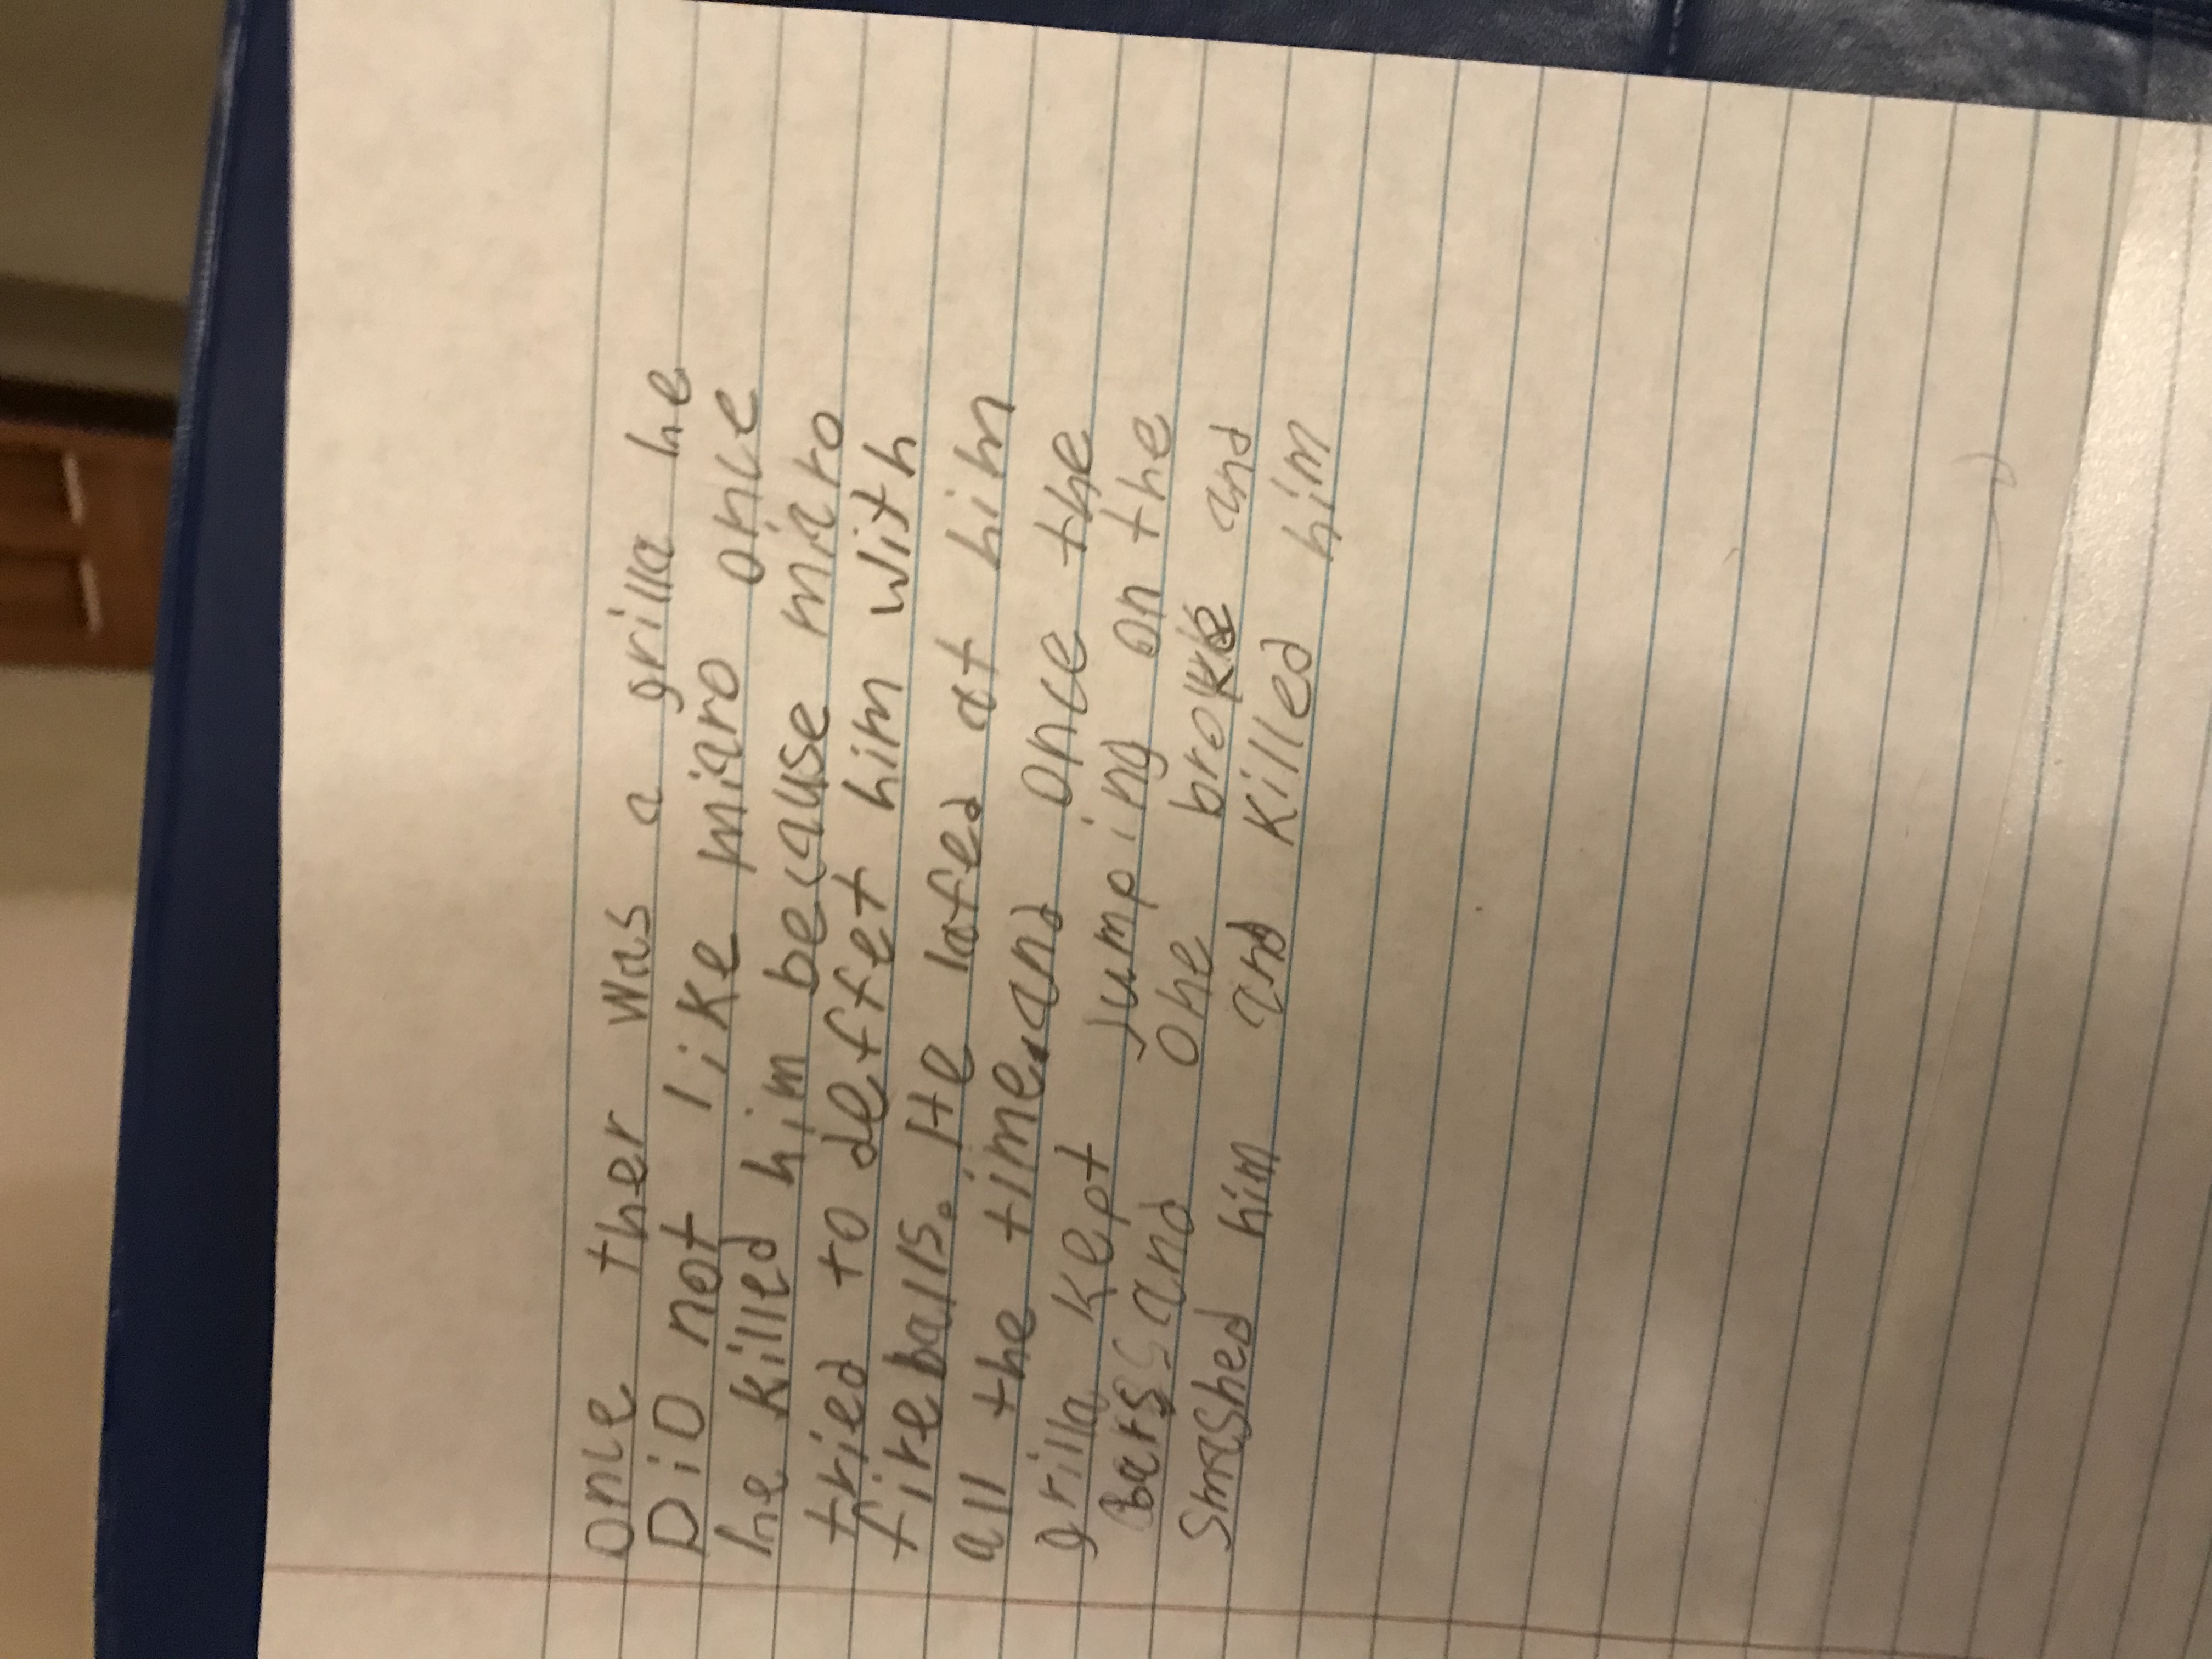 once ther was a grilla he
DiD not like miaro once
he killed him because miaro
tried to deffet him with
fireballs. He lafed at him
all the time and once the
grilla kept jumping on the
Bars and one broke and
smashed him and killed him